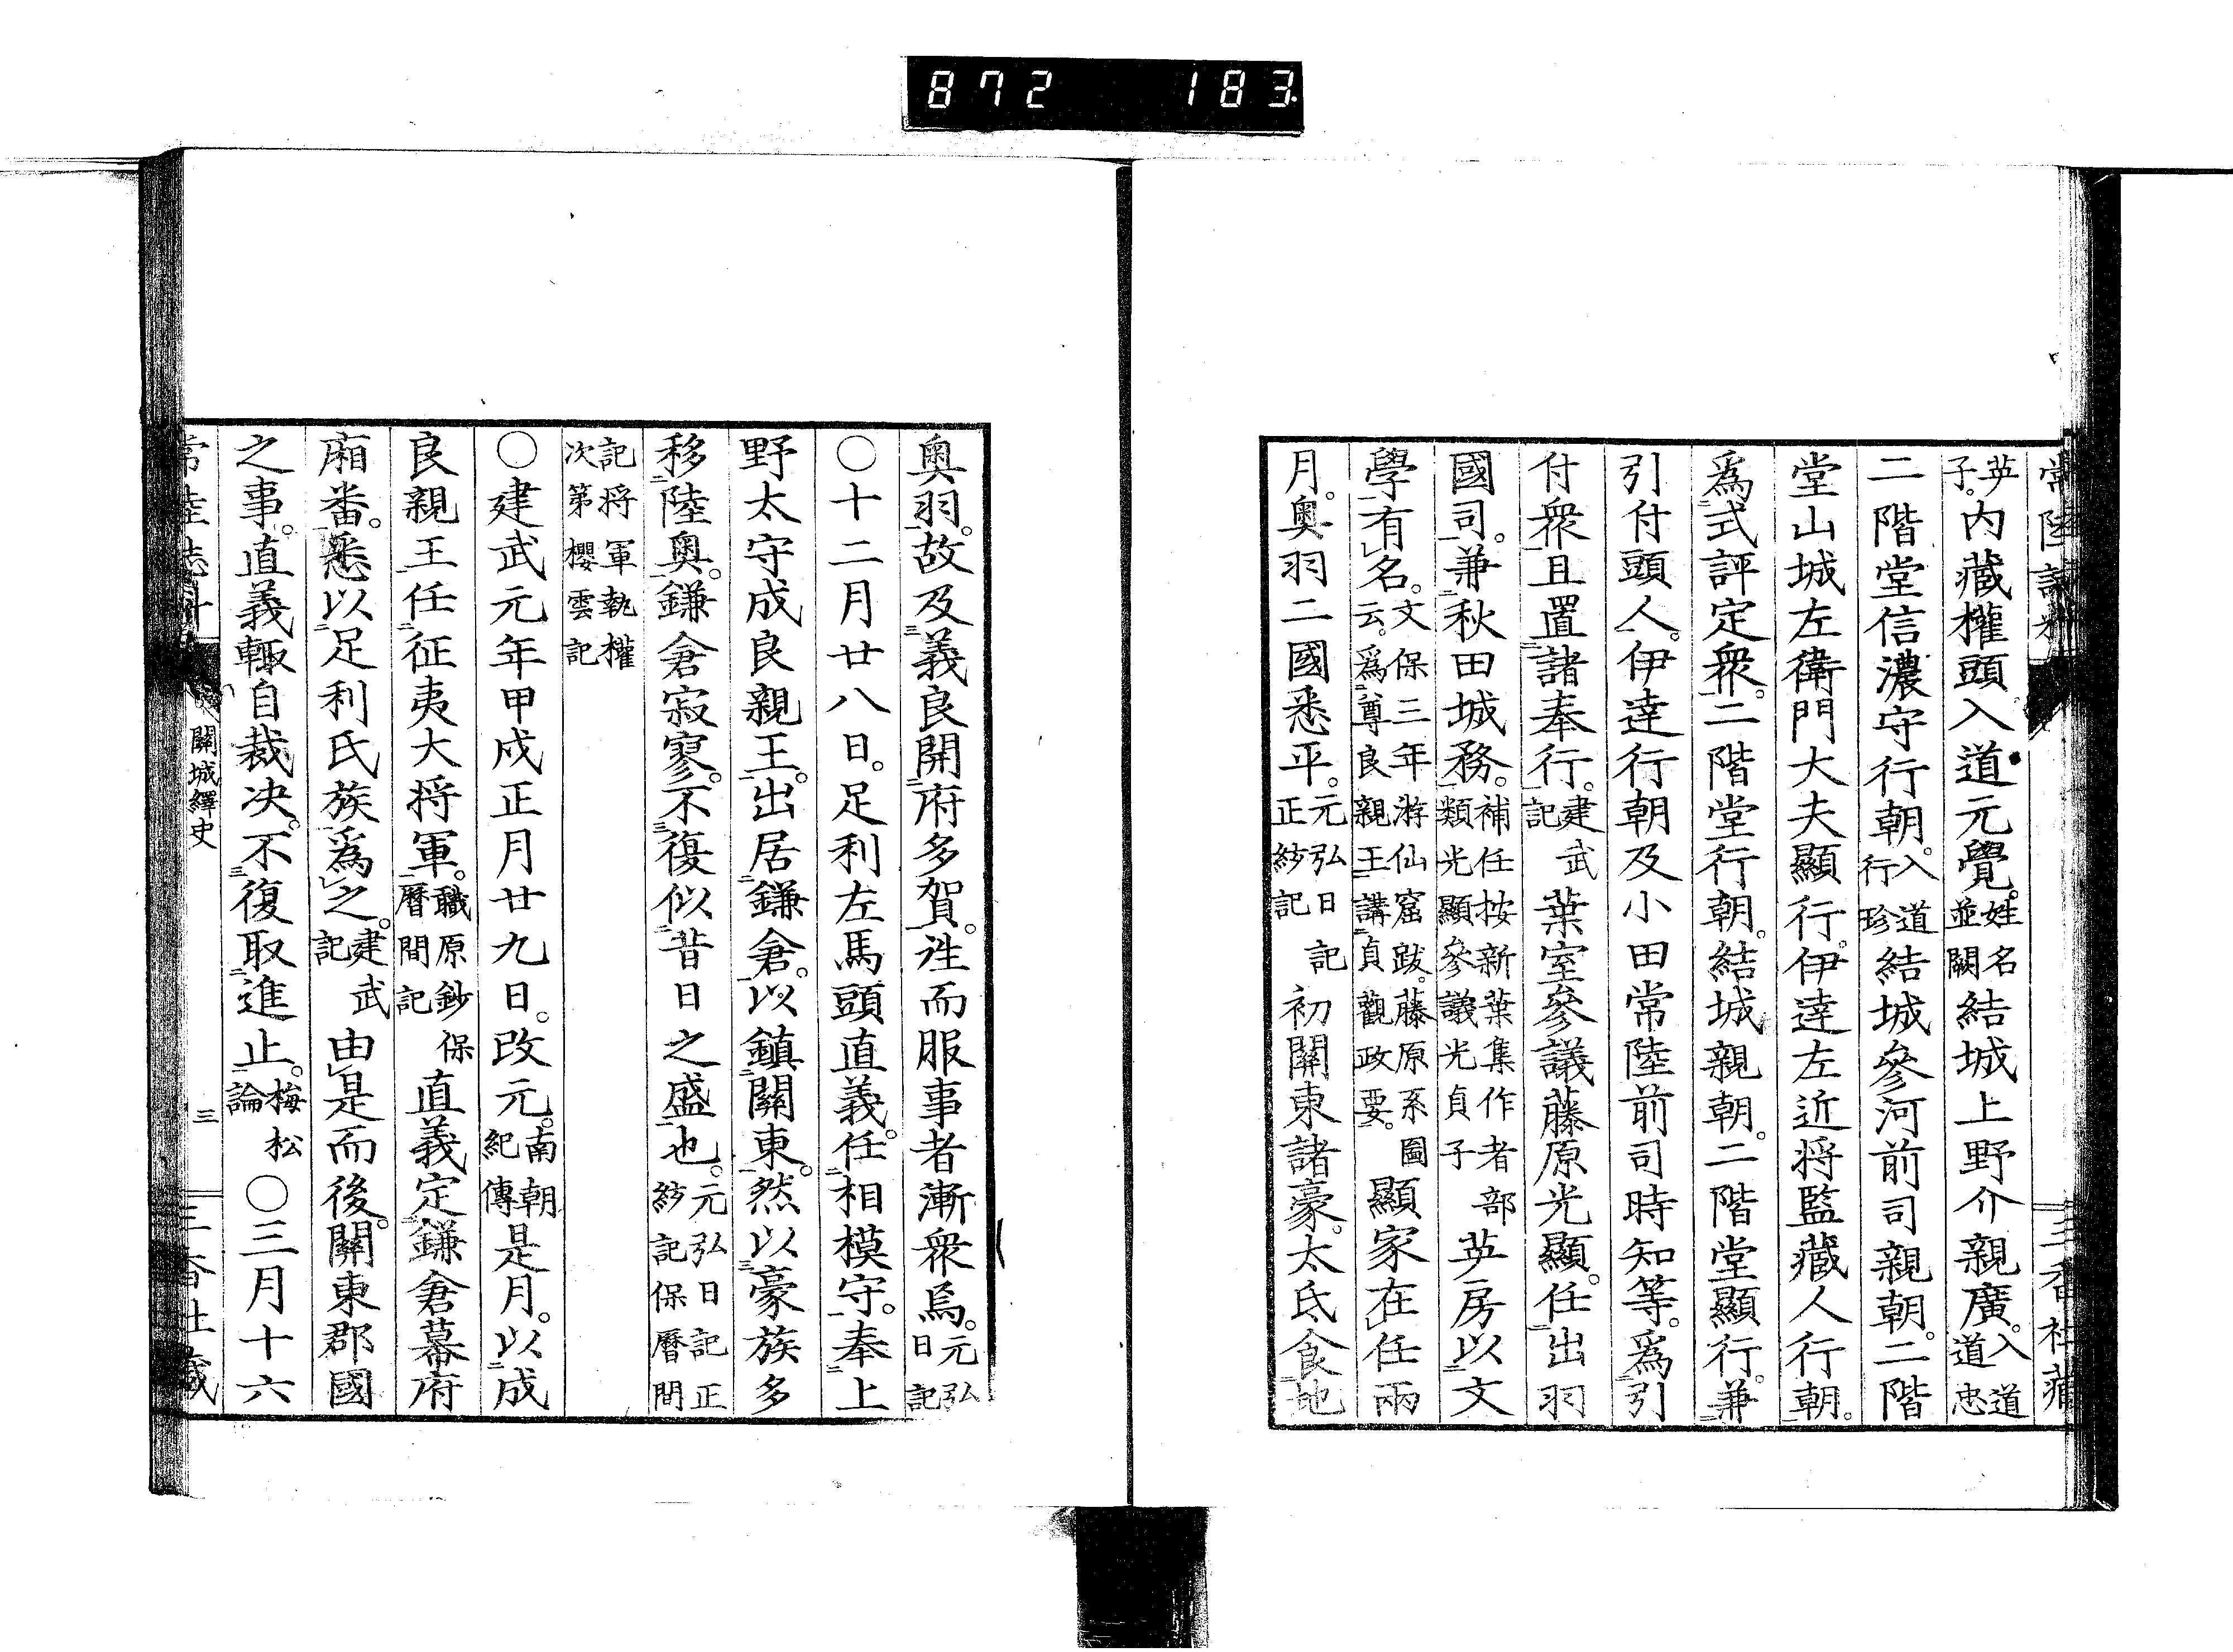 872 183
常陸誌料 三香社藏
英子。内藏權頭入道元覺。姓名並闕結城上野介親廣。入道道忠
二階堂信濃守行朝。入道行珍結城參河前司親朝。二階
堂山城左衛門大夫顯行。伊達左近将監藏人行朝。
爲式評定衆。二階堂行朝。結城親朝。二階堂顯行。兼
引付頭人。伊達行朝及小田常陸前司時知等。爲引
付衆。且置諸奉行。建武記 葉室參議藤原光顯。任出羽
國司。兼秋田城務。補任按新葉集作者部類光顯參議光貞子 英房以文
學有名。文保三年游仙窟跋。藤原系圖云。爲尊良親王講貞觀政要。 顯家在任兩
月。奥羽二國悉平。元弘日記正紗記 初關東諸豪。太氐食地
奥羽。故及義良開府多賀。往而服事者漸衆焉。元弘日記
〇十二月廿八日。足利左馬頭直義。任相模守。奉上
野太守成良親王。出居鎌倉。以鎮關東。然以豪族多
移陸奥。鎌倉寂寥。不復似昔日之盛也。元弘日記正紗記保曆間
記将軍執權次第櫻雲記
〇建武元年甲戌正月廿九日。改元。南朝紀傳是月。以成
良親王任征夷大将軍。職原鈔保曆間記 直義定鎌倉幕府
廂番。悉以足利氏族爲之。建武記 由是而後。關東郡國
之事。直義輙自裁决。不復取進止。梅松論 〇三月十六
常陸誌料 關城繹史 三 三香社藏